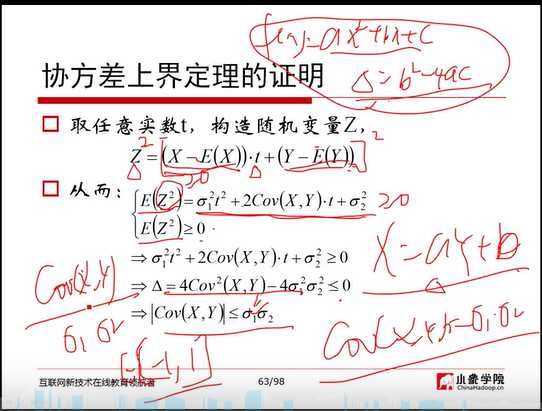 f(x)=ax²+bx+c
Δ=b²-4ac
协方差上界定理的证明
取任意实数t，构造随机变量Z，
Z=(X-E(X))·t+(Y-E(Y))
2
2
Δ
Δ
从而：
≥0
E(Z²)=σ₁²t²+2Cov(X,Y)·t+σ₂²
≥0
E(Z²)≥0
⇒σ₁²t²+2Cov(X,Y)·t+σ₂²≥0
X=aY+b
⇒Δ=4Cov²(X,Y)-4σ₁²σ₂²≤0
Cov(X,Y)
σ₁σ₂
⇒|Cov(X,Y)|≤σ₁σ₂
[-1,1]
互联网新技术在线教育领航者
63/98
小象学院
ChinaHadoop.cn